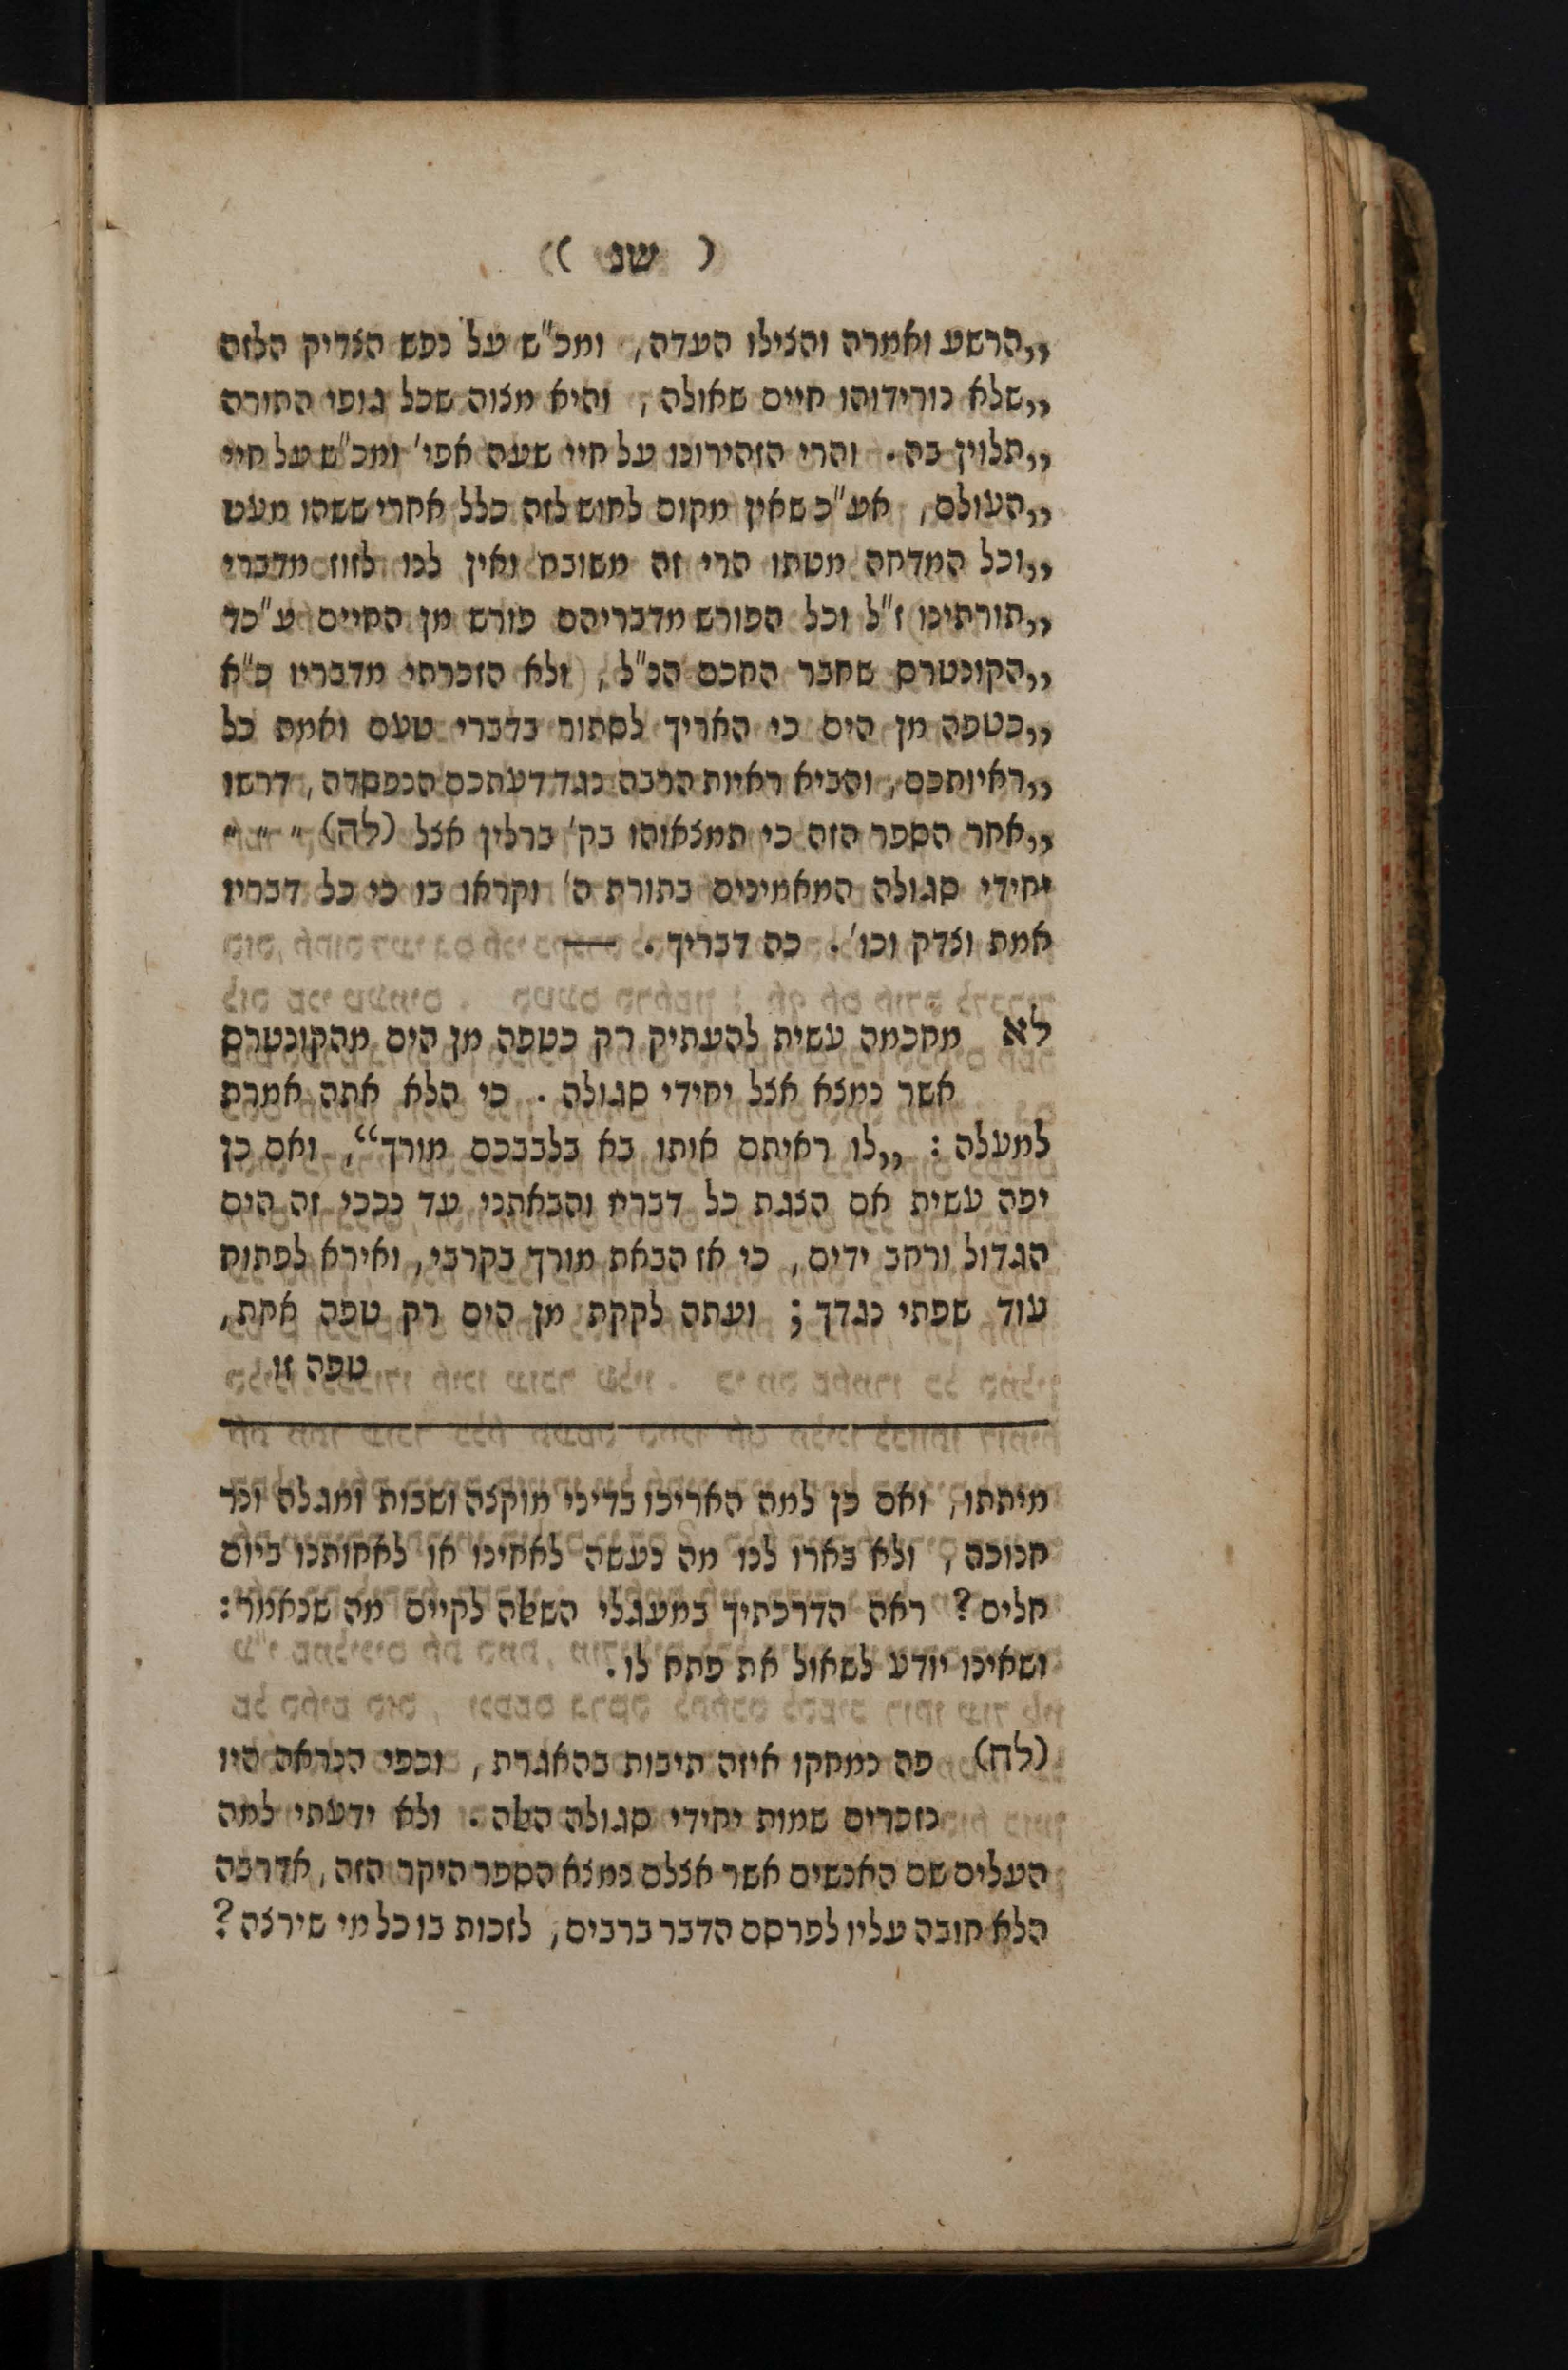 ( שנ )
„הרשע ואמרה והצילו העדה, ומכ"ש על נפש הצדיק הלזה
„שלא נורידוהו חיים שאולה, והיא מצוה שכל גופי התורה
„תלוין בה. והרי הזהירונו על חיי שעה אפי' ומכ"ש על חיי
„העולם, אע"כ שאין מקום לחוש לזה כלל אחרי ששהו מעט
„וכל המדחה מטתו הרי זה משובח ואין לנו לזוז מדברי
„תורתינו ז"ל וכל הפורש מדבריהם פורש מן החיים ע"כד
„הקונטרס שחבר החכם הנ"ל, ולא הזכרתי מדבריו כ"א
„כטפה מן הים כי האריך לסתור בדברי טעם ואמת כל
„ראיותכם, והביא ראיות הרבה כנגד דעתכם הנפסדה, דרשו
„אחר הספר הזה כי תמצאוהו בק' ברלין אצל (לח) " " "
יחידי סגולה המאמינים בתורת ה' וקראו בו כי כל דבריו
אמת וצדק וכו'. כה דבריך. —
לא מחכמה עשית להעתיק רק כטפה מן הים מהקונטרס
אשר נמצא אצל יחידי סגולה. כי הלא אתה אמרת
למעלה: „לו ראיתם אותו בא בלבבכם מורך“, ואם כן
יפה עשית אם הצגת כל דבריו והבאתני עד נבכי זה הים
הגדול ורחב ידים, כי אז הבאת מורך בקרבי, ואירא לפתוח
עוד שפתי כנגדך; ועתה לקקת מן הים רק טפה אחת,
טפה זו
מיתתו, ואם כן למה האריכו בדיני מוקצה ושבות ומגלה ונר
חנוכה, ולא בארו לנו מה נעשה לאחינו או לאחותנו ביום
חלים? ראה הדרכתיך במעגלי השטה לקיים מה שנאמר:
ושאינו יודע לשאול את פתח לו.
(לח) פה נמחקו איזה תיבות בהאגרת, וכפי הנראה היו
נזכרים שמות יחידי סגולה האלה. ולא ידעתי למה
העלים שם האנשים אשר אצלם נמצא הספר היקר הזה, אדרבה
הלא חובה עליו לפרסם הדבר ברבים, לזכות בו כל מי שירצה?